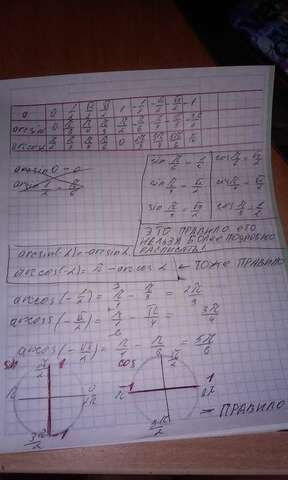 a 0 1/2 √2/2 √3/2 1 -1/2 -√2/2 -√3/2 -1
arcsin 0 π/6 π/4 π/3 π/2
arccos π/2 π/3 π/4 π/6 0 2π/3 3π/4 5π/6 π
arcsin 0 = 0
sin π/6 = 1/2 cos π/6 = √3/2
sin π/4 = √2/2 cos π/4 = √2/2
sin π/3 = √3/2 cos π/3 = 1/2
ЭТО ПРАВИЛО ЕГО
НЕЛЬЗЯ БОЛЕЕ ПОДРОБНО
РАСПИСАТЬ!
arcsin(-a) = -arcsin a
arccos(-a) = π - arccos a ← ТОЖЕ ПРАВИЛО
arccos(-1/2) = π/1 - π/3 = 2π/3
arccos(-√2/2) = π/1 - π/4 = 3π/4
arccos(-√3/2) = π/1 - π/6 = 5π/6
sin π/2 1 cos π/2
π 0 2π π 1 2π
3π/2 -1 3π/2
- ПРАВИЛО